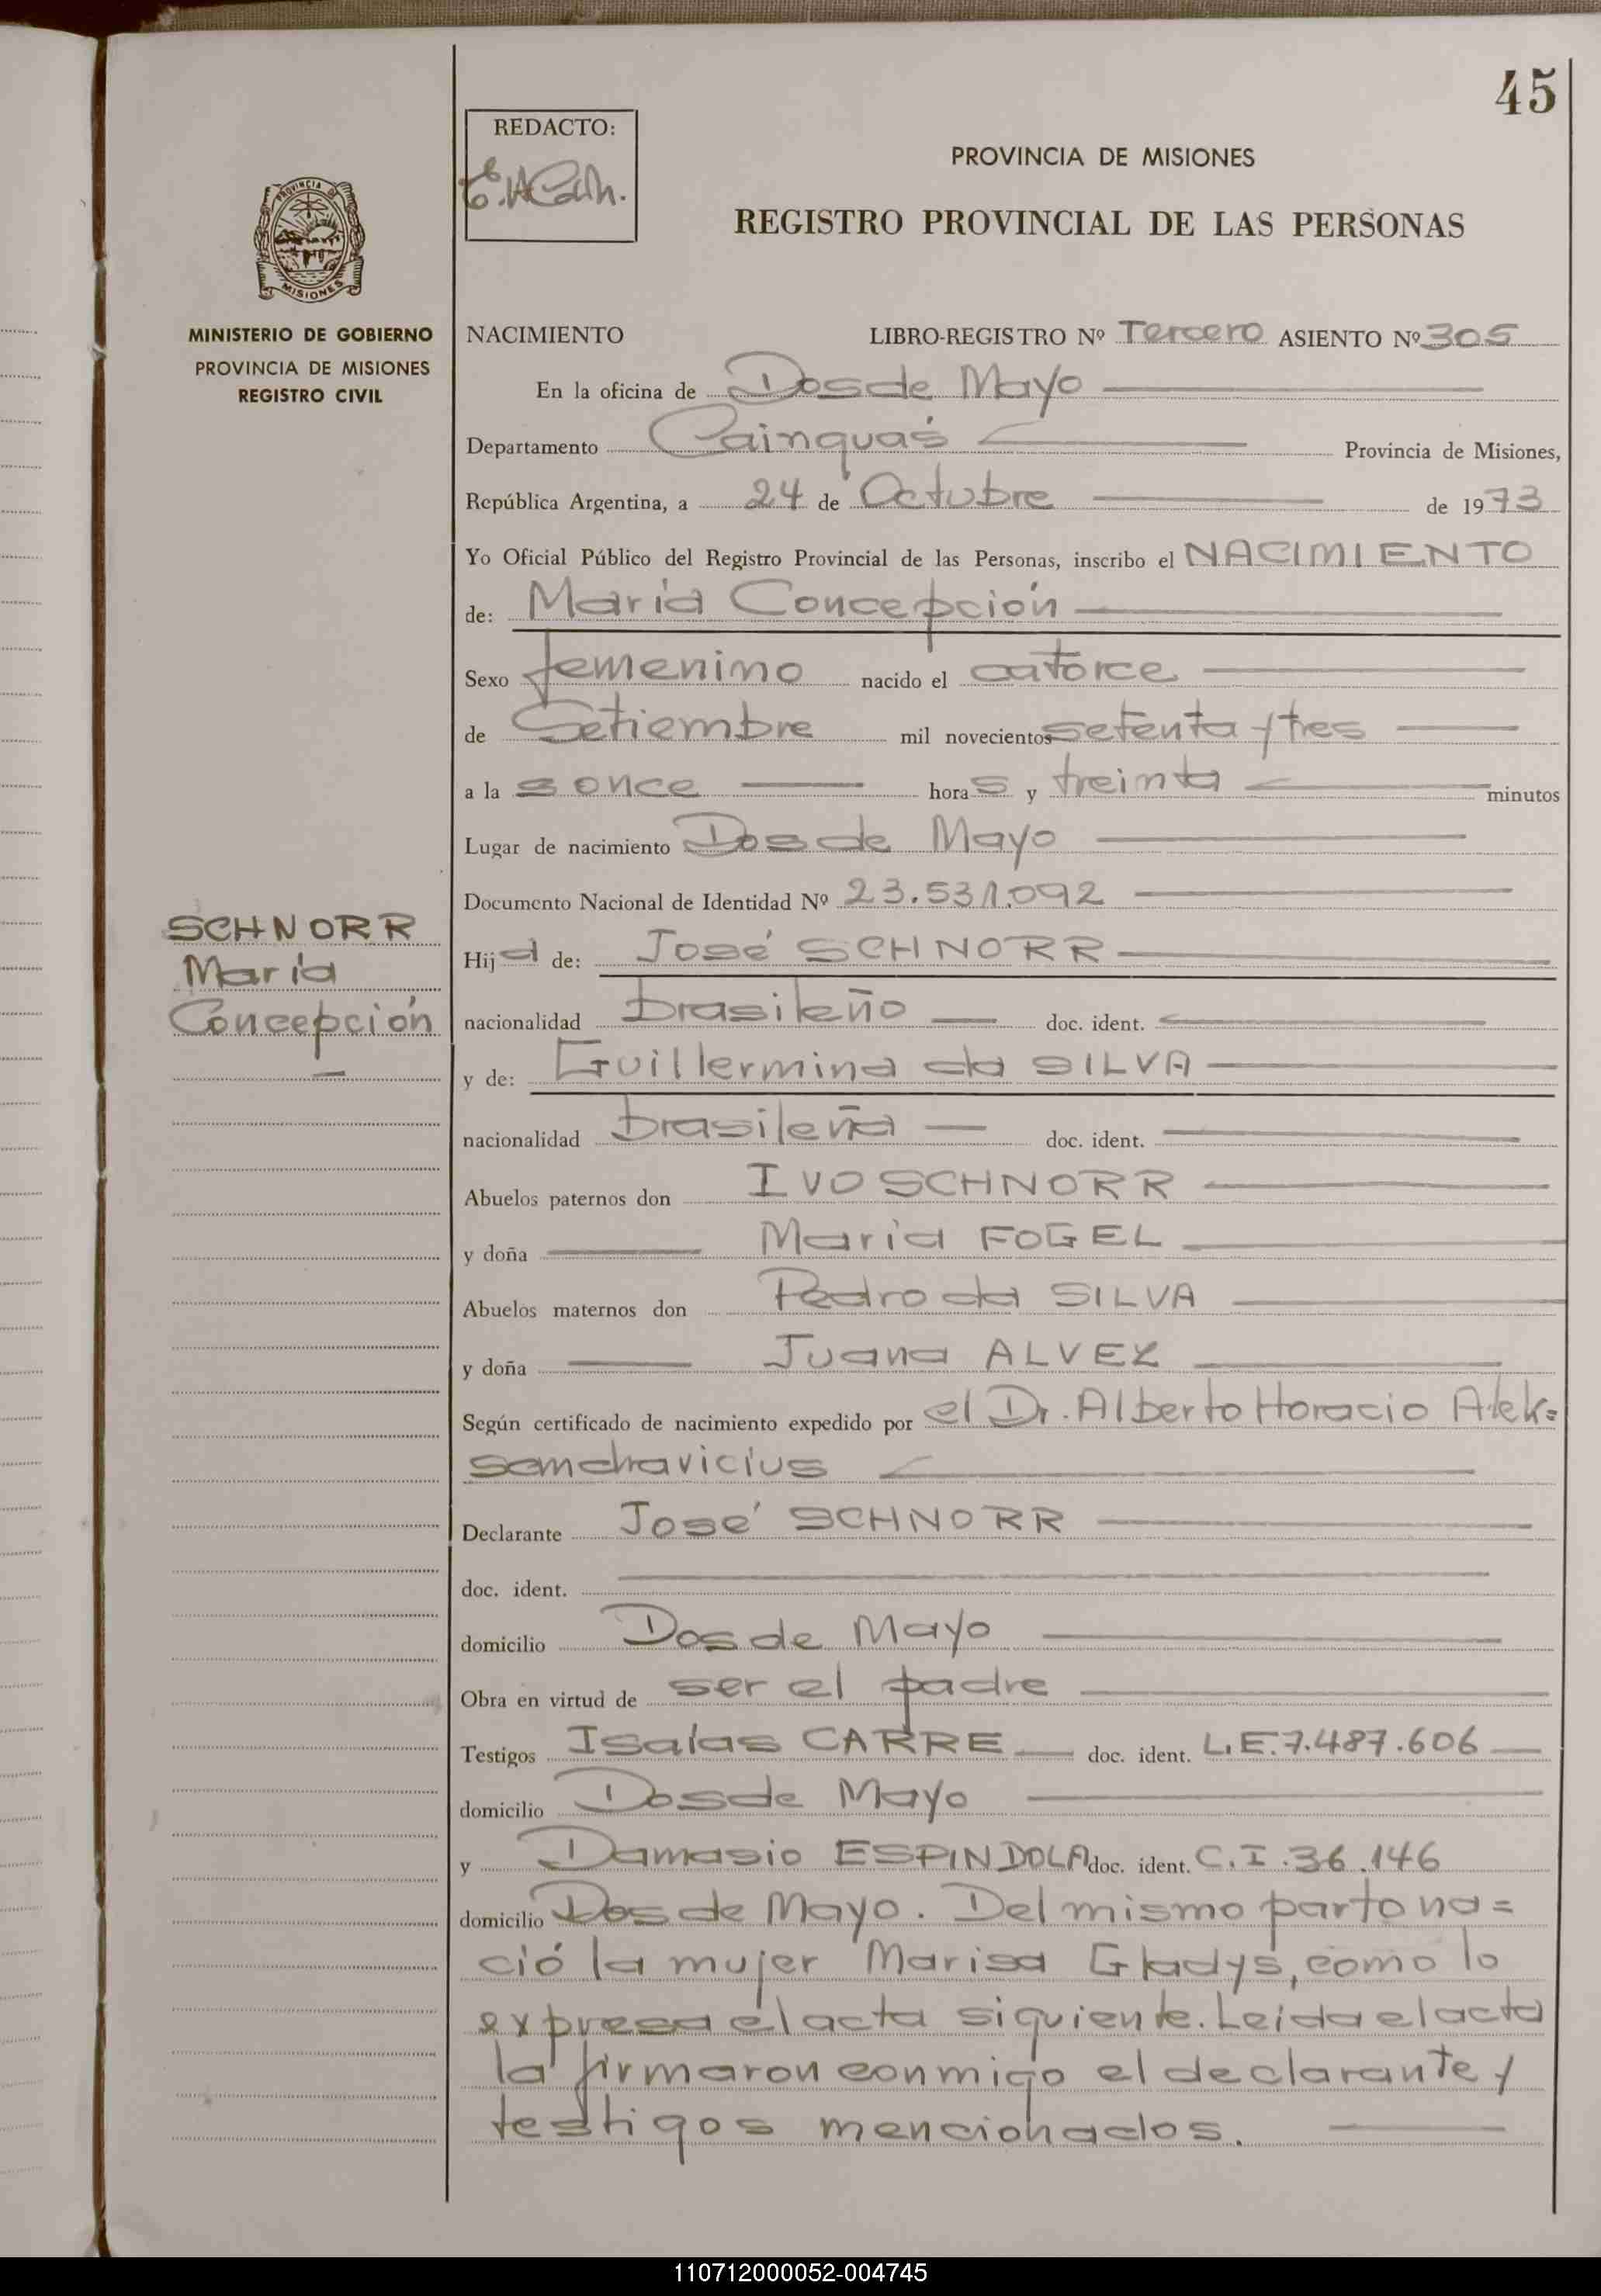 45
REDACTO:
PROVINCIA DE MISIONES
REGISTRO PROVINCIAL DE LAS PERSONAS
PROVINCIA DE
MISIONES
MINISTERIO DE GOBIERNO
PROVINCIA DE MISIONES
REGISTRO CIVIL
NACIMIENTO LIBRO-REGISTRO Nº Tercero ASIENTO Nº 305
En la oficina de Dos de Mayo
Departamento Cainguás Provincia de Misiones,
República Argentina, a 24 de Octubre de 1973
Yo Oficial Público del Registro Provincial de las Personas, inscribo el NACIMIENTO
de: María Concepción
Sexo femenino nacido el catorce
de Setiembre mil novecientos setenta y tres
a la s once horas y treinta minutos
Lugar de nacimiento Dos de Mayo
Documento Nacional de Identidad Nº 23.531.092
SCHNORR
María
Concepción
Hija de: José SCHNORR
nacionalidad brasileño doc. ident.
y de: Guillermina da SILVA
nacionalidad brasileña doc. ident.
Abuelos paternos don IVO SCHNORR
y doña María FOGEL
Abuelos maternos don Pedro da SILVA
y doña Juana ALVEZ
Según certificado de nacimiento expedido por el Dr. Alberto Horacio Alek=
sandravicius
Declarante José SCHNORR
doc. ident.
domicilio Dos de Mayo
Obra en virtud de ser el padre
Testigos Isaías CARRE doc. ident. L.E.7.487.606
domicilio Dos de Mayo
y Damasio ESPINDOLA doc. ident. C.I.36.146
domicilio Dos de Mayo. Del mismo parto na=
ció la mujer Marisa Gladys, como lo
expresa el acta siguiente. Leída el acta
la firmaron conmigo el declarante y
testigos mencionados.
110712000052-004745